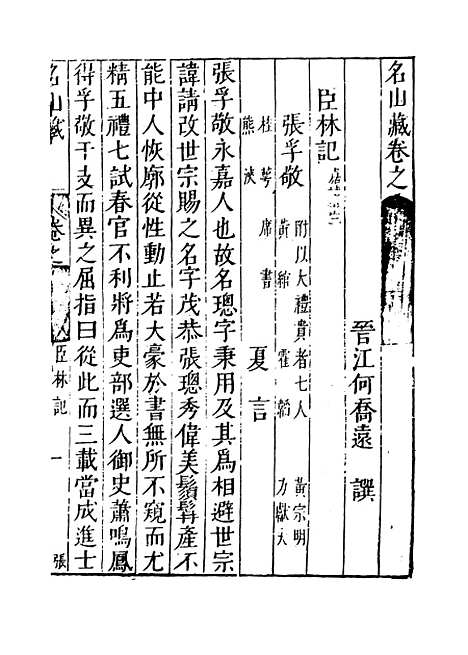 名山藏卷之
晉江何喬遠 譔
臣林記
張孚敬 附以大禮貴者七人 黃宗明
黃綰 霍韜 方獻夫
桂萼 席書
熊浹
夏言
張孚敬永嘉人也故名璁字秉用及其爲相避世宗
諱請改世宗賜之名字茂恭張璁秀偉美鬚髯產不
能中人恢廓從性動止若大豪於書無所不窺而尤
精五禮七試春官不利將爲吏部選人御史蕭鳴鳳
得孚敬干支而異之屈指曰從此而三載當成進士
名山藏 卷之 臣林記 一 張